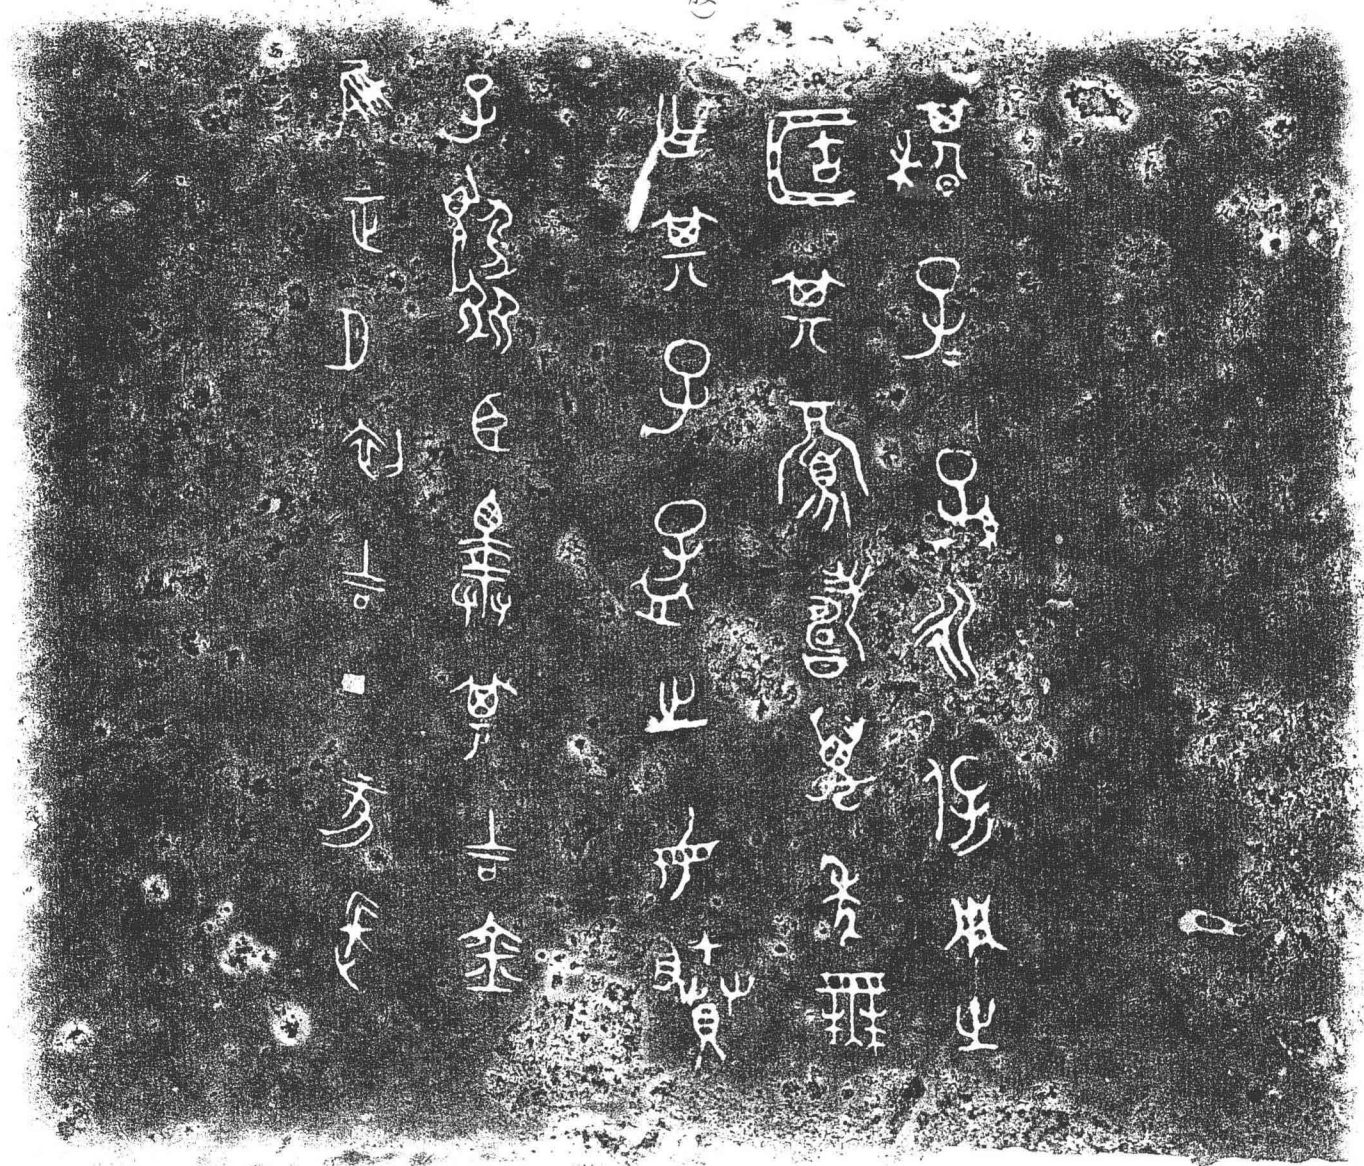 隹正月初吉丁亥長
子臣擇其吉金
乍其子孟之母媵
匿其眉壽萬年無
期子=孫=永保用之